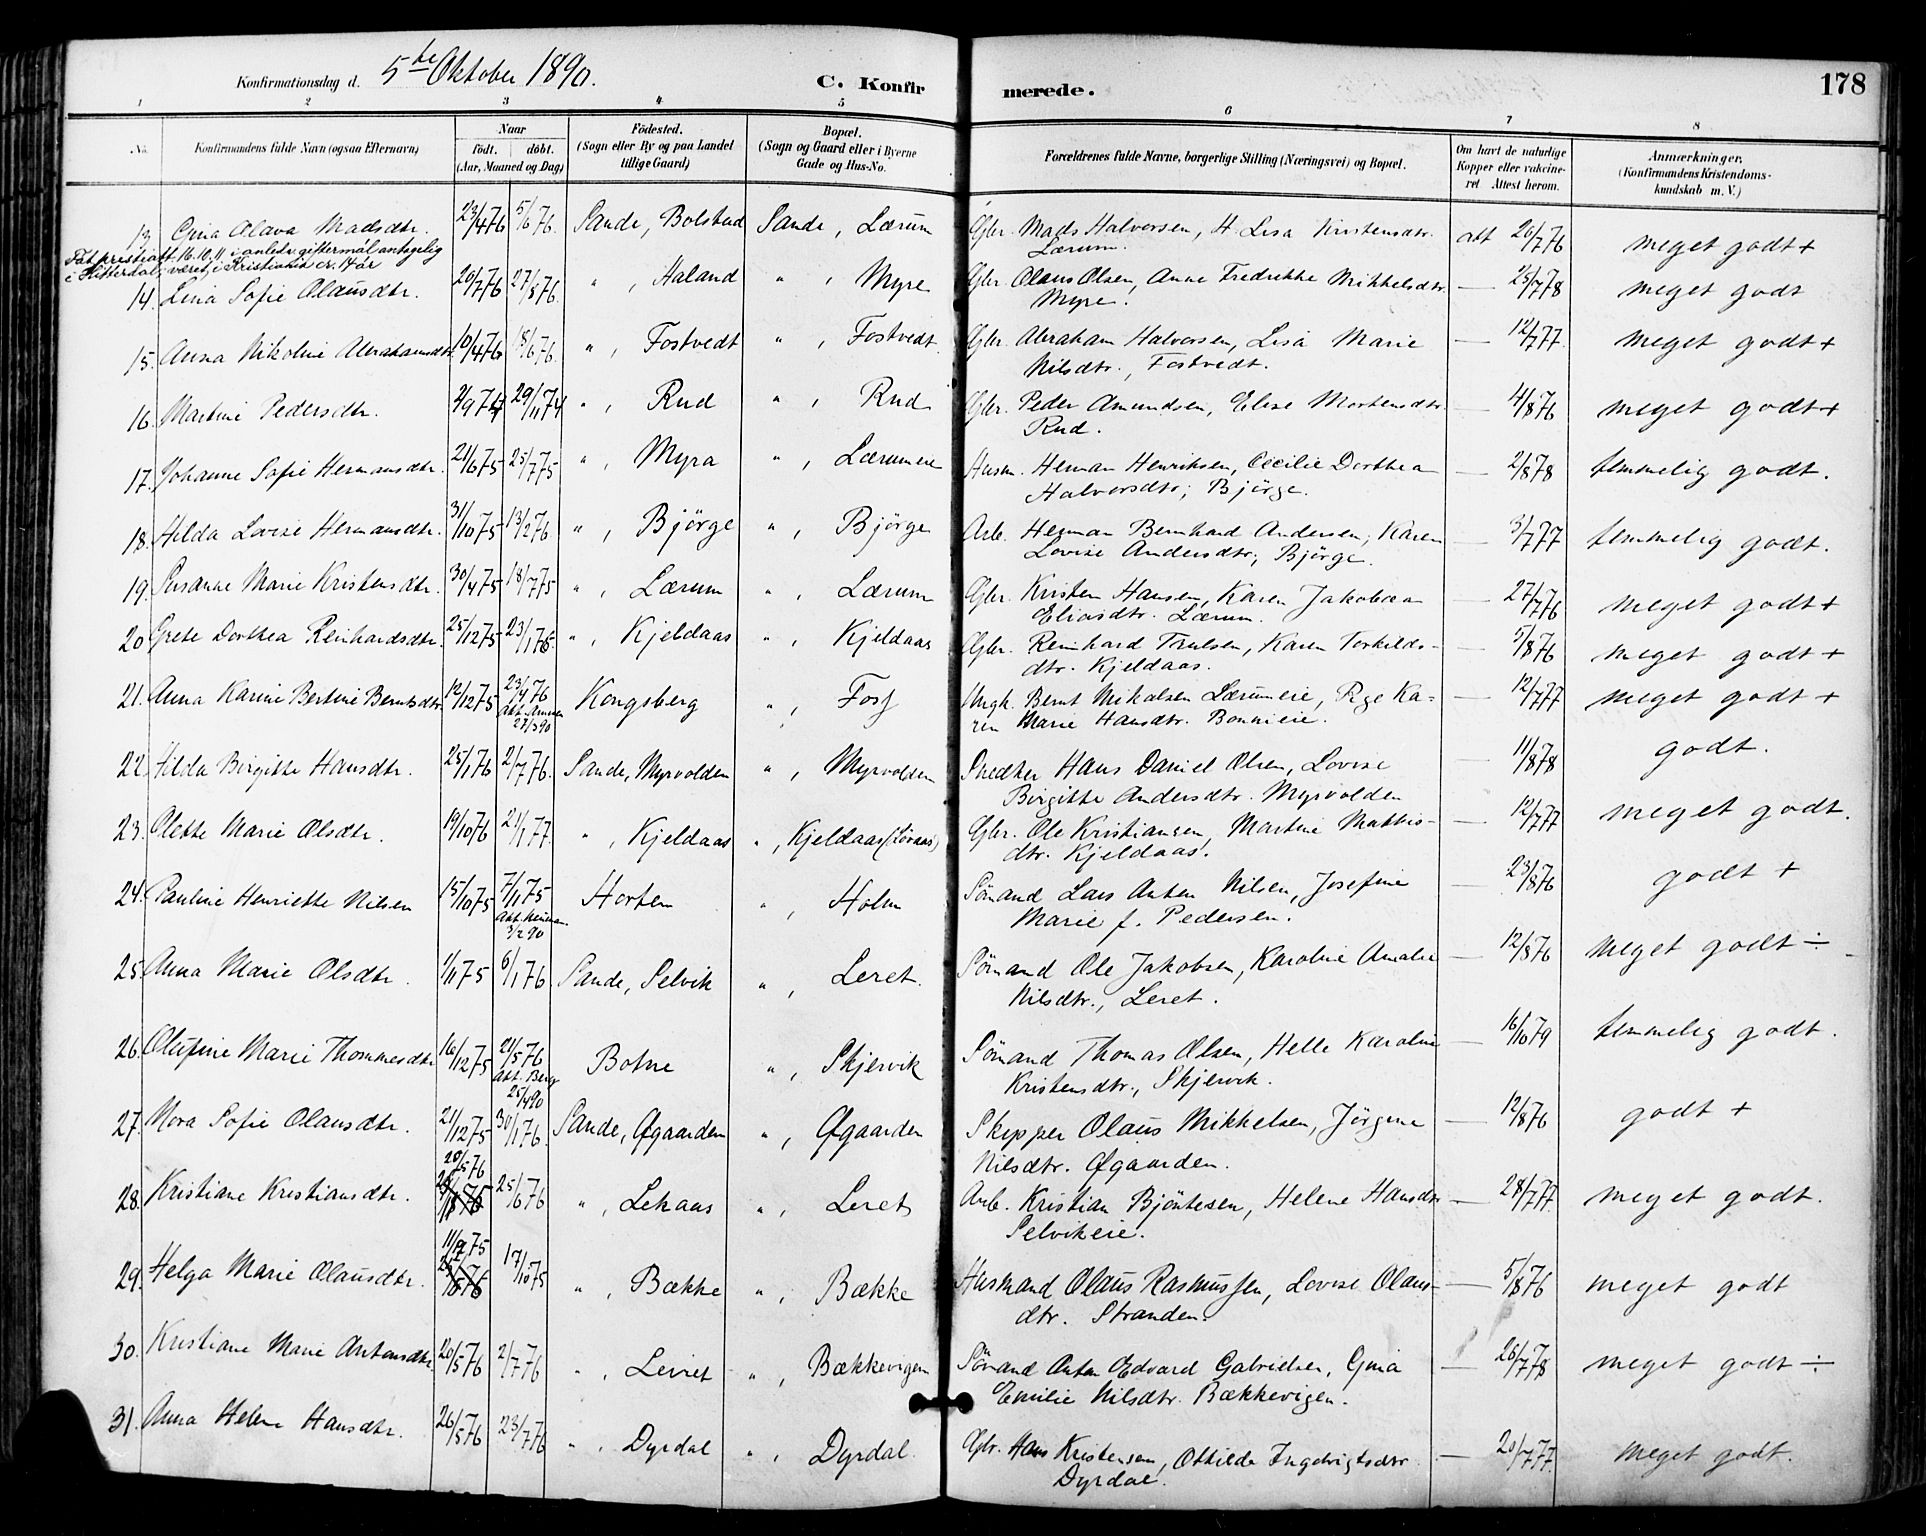 Konfirmationsdag d. 5te Oktober 1890. C. Konfirmerede. 178
1 2 3 4 5 6 7 8
No. Konfirmandens fulde Navn (ogsaa Efternavn) Naar födt. döbt. (Aar, Maaned og Dag) Födested. (Sogn eller By og paa Landet tillige Gaard) Bopæl. (Sogn og Gaard eller i Byerne Gade og Hus-No. Forældrenes fulde Navne, borgerlige Stilling (Næringsvei) og Bopæl. Om havt de naturlige Kopper eller vakcineret. Attest herom. Anmærkninger. (Konfirmandens Kristendomskundskab m. V.)
13. Gina Olava Madsdtr. 23/4 76 5/6 76. Sande, Bolstad Sande, Lærum Gbr. Mads Halvorsen, H. Lisa Kristensdtr. att 26/7 76 meget godt +
Lærum.
16.10.11 i anledn. giftermål antagelig
i Hitterdal; været i Kristiania cr. 14 år
14. Lina Sofie Olausdtr. 20/7 76 27/8 76. " , Haland " , Myre Gbr. Olaus Olsen, Anne Fredrikke Mikkelsdtr. — 25/7 78 meget godt
Myre.
15. Anna Nikoline Abrahamsdtr. 10/4 76 18/6 76. " , Fostvedt " , Fostvedt. Gbr. Abraham Halvorsen, Lisa Marie — 12/7 77. meget godt +
Nilsdtr., Fostvedt.
16. Martine Pedersdtr. 2/9 74 29/11 74 " , Rud " , Rud Gbr. Peder Amundsen, Elise Mortensdtr. — 4/8 76 meget godt +
Rud.
17. Johanne Sofie Hermansdtr. 21/6 75 25/7 75 " , Myra " , Lærumeie Husm. Herman Henriksen, Cecilie Dorthea — 2/8 78 temmelig godt.
Halvorsdtr; Bjørge.
18. Hilda Lovise Hermansdtr. 31/10 75 13/2 76 " , Bjørge " , Bjørge Arb. Herman Bernhard Andersen, Karen — 3/7 77 temmelig godt.
Lovise Andersdtr; Bjørge.
19. Susanne Marie Kristensdtr. 30/4 75 18/7 75 " , Lærum " , Lærum Gbr. Kristen Hansen, Karen Jakobæa — 27/7 76 meget godt +
Eliasdtr. Lærum.
20 Grete Dorthea Reinhardsdtr. 25/12 75 23/1 76. " , Kjeldaas " , Kjeldaas Gbr. Reinhard Trulsen, Karen Torkilds- — 5/8 76 meget godt +
dtr. Kjeldaas.
21. Anna Karine Bertine Berntsdtr. 12/12 75 23/4 76 Kongsberg " , Foss Ungk. Bernt Nikolsen Lærumeie, Pige Ka- — 12/7 77 meget godt +
ren Marie Hansdtr. Bonnieie.
22. Hilda Birgitte Hansdtr. 25/1 76 2/7 76. Sande, Myrvolden " , Myrvolden Snedker Hans Daniel Olsen, Lovise — 11/8 78 godt.
Birgitte Andersdtr. Myrvolden
23. Olette Marie Olsdtr. 19/10 76 21/1 77. " , Kjeldaas " , Kjeldaas Gbr. Ole Kristiansen, Martine Mathis- — 12/7 77 meget godt.
dtr. Kjeldaas.
24. Pauline Henriette Nilsen 15/10 75 7/11 75 Horten " , Holm Sømand Lars Anton Nilsen, Josefine — 23/8 76 godt +
3/2 90 Marie f. Pedersen.
25. Anna Marie Olsdtr. 1/11 75 6/1 76 Sande, Selvik " , Leret. Sømand Ole Jakobsen, Karoline Amalie — 12/8 76 meget godt ÷
Nilsdtr., Leret.
26. Olufine Marie Thommesdtr 16/12 75 21/5 76 Botne " , Skjervik Sømand Thomas Olsen, Helle Karoline — 16/10 79 temmelig godt.
Att. Berg 25/4 90 Kristensdtr., Skjervik.
27. Nora Sofie Olausdtr. 21/12 75 30/1 76 Sande, Øgaarden " , Øgaarden Skipper Olaus Mikkelsen, Jørgine — 12/8 76 godt +
Nilsdtr. Øgaarden.
28. Kristiane Kristiansdtr. 20/5 76 25/6 76 " , Lekaas " , Leret Arb. Kristian Bjøntesen, Helene Hansdtr — 28/7 77. meget godt.
Selvikeie.
29. Helga Marie Olausdtr. 11/9 75 17/10 75 " , Bække " , Bække Husmand Olaus Rasmussen, Lovise Olaus- — 5/8 76 meget godt
dtr. Stranden.
30. Kristiane Marie Antonsdtr. 20/5 76 2/7 76 " , Leiret " , Bækkevigen Sømand Anton Edvard Gabrielsen, Gina — 26/7 78 meget godt ÷
Emilie Nilsdtr. Bækkevigen.
31. Anna Helene Hansdtr. 26/5 76 23/7 76 " , Dyrdal " , Dyrdal. Gbr. Hans Kristensen, Ottilde Ingebrigtsdtr — 20/7 77. meget godt.
Dyrdal.